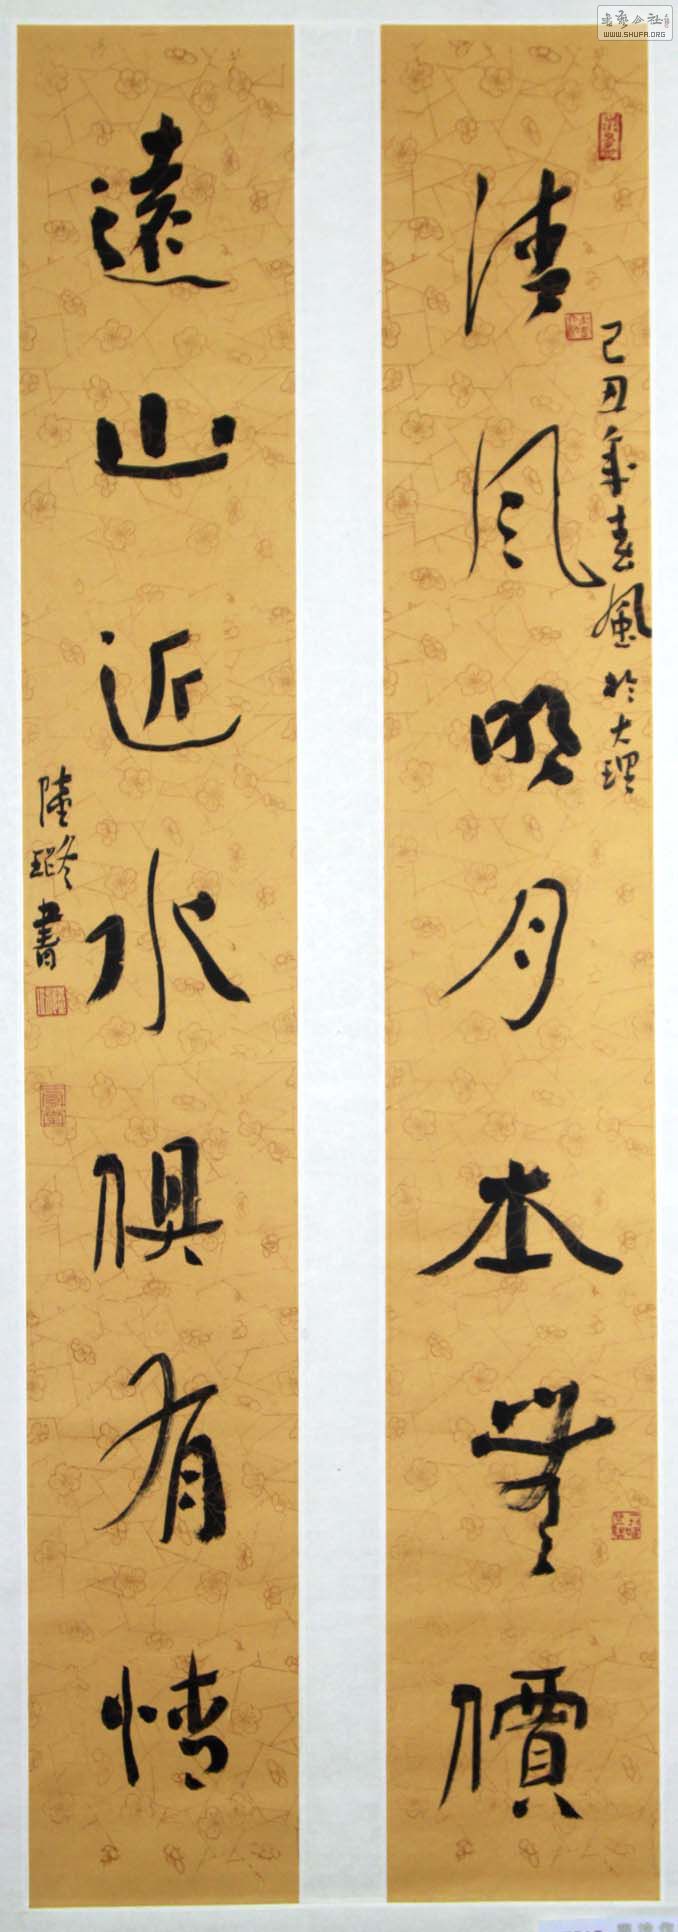 清风明月本無價
己丑年春風於大理
遠山近水俱有情
陸
書
WWW.SHUFA.ORG